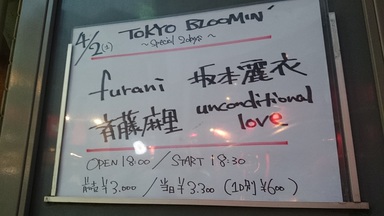 4/2(土) TOKYO BLOOMIN'
～Special 2days～
furani 坂本麗衣
斉藤麻里 unconditional love.
OPEN 18:00 / START 18:30
前売 ¥3,000 / 当日 ¥3,300 (1D別 ¥600)